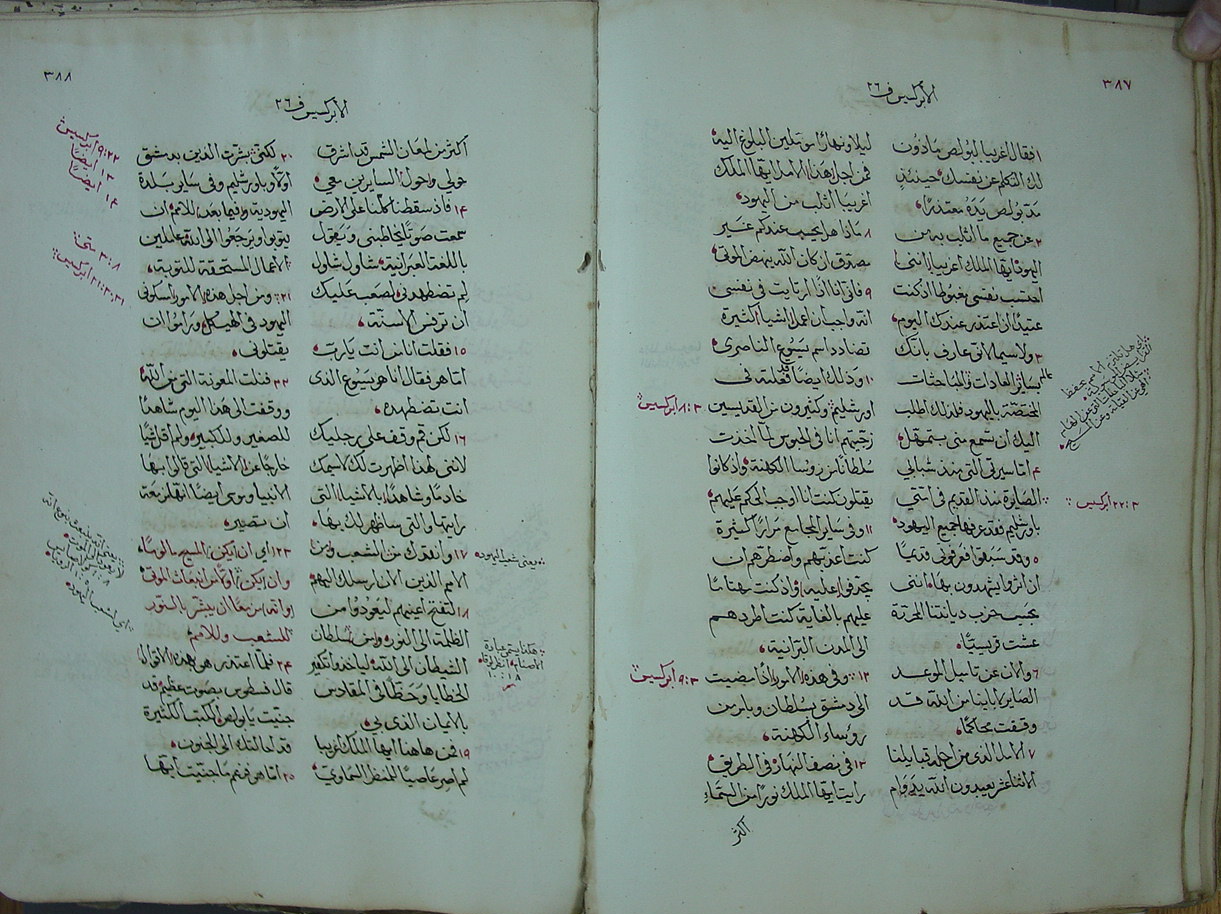 ٣٨٧
الابركسيس ف ٢٦
١ فقال اغريبا لبولص ماذون
لك التكلم عن نفسك حينئذٍ
مدّ بولص يده معتذرًا
٢ عن جميع ما اثلب به من
اليهود ايها الملك اغريبا انني
احتسب نفسي مغبوطًا اذ كنت
عتيدًا ان اعتذر عندك اليوم
٣ ولا سيما لاني عارف بانك
عالم بساير العادات والمباحثات
المختصة باليهود فلذلك اطلب
اليك ان تسمع مني بتمهل
٤ اما سيرتي التي منذ شبابي
الصايرة منذ القديم في امتي
باورشليم فقد عرفها جميع اليهود
٥ وقد سبقوا فعرفوني قديمًا
ان اثروا يشهدون بها انني
بحسب حزب ديانتنا المحررة
عشت فريسيًا
٦ والان عن تاميل الموعد
الصاير لاباينا من الله قد
وقفت محاكمًا
٧ الامل الذي من اجله قبايلنا
الاثنا عشر يعبدون الله بدوام
ليلًا ونهارًا مؤملين البلوغ اليه
فمن اجل هذا الامل ايها الملك
اغريبا اثلب من اليهود
٨ ماذا هل يحسب عندكم غير
مصدق ان كان الله ينهض الموتى
٩ فاني انا اذًا ارتايت في نفسي
انه واجب ان اعمل اشيا كثيرة
تضادد اسم يسوع الناصري
١٠ وذلك ايضًا قد فعلته في
اورشليم وكثيرون من القديسين
زجّيتهم انا في الحبوس لما اخذت
سلطانًا من روسا الكهنة واذ كانوا
يقتلون كنت انا اوجب الحكم عليهم
١١ وفي ساير المجامع مرارًا كثيرة
كنت اعذبهم واضطرهم ان
يجدفوا عليه واذ كنت بهتانًا
عليهم بالغاية كنت اطردهم
الى المدن البرانية
١٢ وفي هذه الامور اذ مضيت
الى دمشق بسلطان وبامر من
روساء الكهنة
١٣ في نصف النهار في الطريق
رايت ايها الملك نورًا من السماء
اكثر
٨ : ٣ ابركسيس
٩ : ٣ ابركسيس
٢٢ : ٣ ابركسيس
٣٨٨
الابركسيس ف ٢٦
اكثر من لمعان الشمس قد اشرق
حولي وحول السايرين معي
١٤ فاذ سقطنا كلنا على الارض
سمعت صوتًا يخاطبني ويقول
باللغة العبرانية شاول شاول
لم تضطهدني لصعب عليك
ان ترفس الاسنة
١٥ فقلت انا من انت يا رب
اما هو فقال انا هو يسوع الذي
انت تضطهده
١٦ لكن قم وقف على رجليك
لانني لهذا اظهرت لك لاقيمك
خادمًا وشاهدًا بالاشيا التي
رايتها والتي ساظهر لك بها
١٧ وانقذك من الشعب ومن
الامم الذين الان ارسلك اليهم
١٨ لتفتح اعينهم ليعودوا من
الظلمة الى النور ومن سلطان
الشيطان الى الله لياخذوا تكفير
الخطايا وحظًا في المقادس
بالايمان الذي بي
١٩ فمن هاهنا ايها الملك اغريبا
لم اصر عاصيًا للمنظر السماوي
٢٠ لكني بشرت الذين بدمشق
اولًا وباورشليم وفي ساير بلدة
اليهودية وفيما بعد للامم ان
يتوبوا ويرجعوا الى الله عاملين
الاعمال المستحقة للتوبة
٢١ ومن اجل هذه الامور امسكوني
اليهود في الهيكل وراموا ان
يقتلوني
٢٢ فنلت المعونة التي من الله
ووقفت الى هذا اليوم شاهدًا
للصغير وللكبير ولم اقل شيًا
خارجًا عن الاشيا التي قالوا بها
الانبيا وموسى ايضًا انها مزمعة
ان تصير
٢٣ اي ان يكون المسيح مالومًا
وان يكون اولًا من انبعاث الموتى
وانه مزمعًا ان يبشر بالنور
للشعب وللامم
٢٤ فلما اعتذر هو بهذه الاقوال
قال فسطوس بصوت عظيم قد
جننت يا بولص الكتب الكثيرة
قد امالتك الى الجنون
٢٥ اما هو فنعم ما جننت ايها
٩ : ٢٢ ابركسيس
١٣ ايضًا
١٤ ايضًا
٣ : ٨ متى
٢١ : ٣٠ ٣١ ابركسيس
يعني شعب اليهود